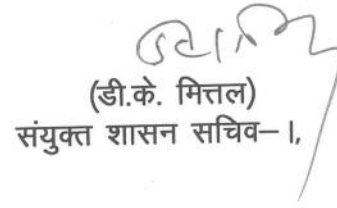 (डी.के. मित्तल)
संयुक्त शासन सचिव–।,